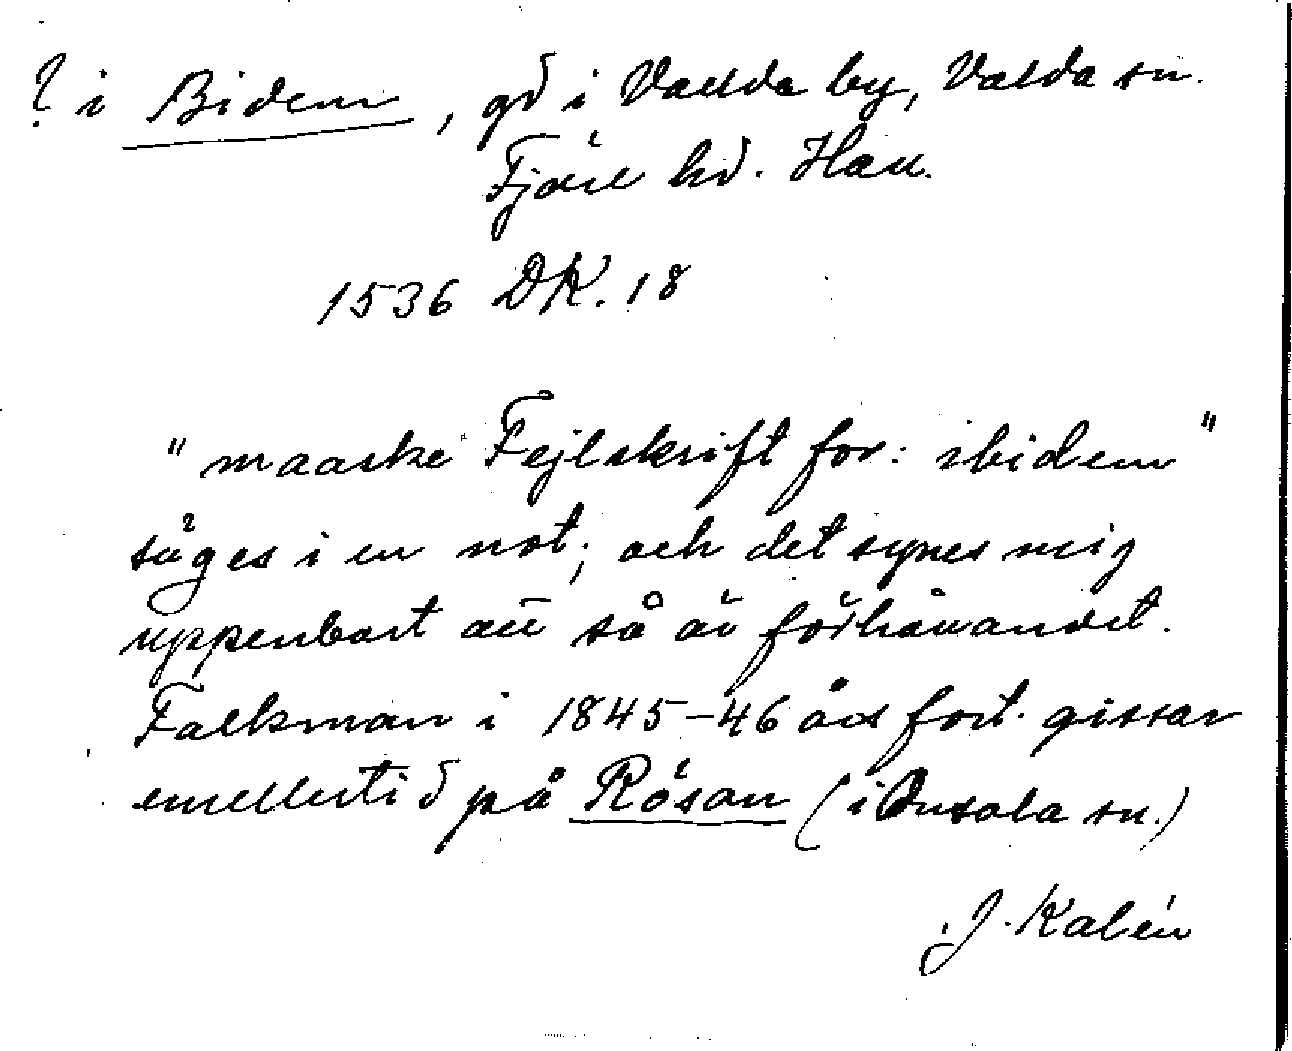 ? i Bidem, gd i Vallda by, Valda sn.
Fjäre hd. Hall.
1536 DK. 18
"maaske Fejlskrift for: ibidem"
säges i en not; och det synes mig
uppenbart att så är förhållandet.
Falkman i 1845-46 års fort. gissar
emellertid på Rösan (i Onsala sn.)
J. Kalén